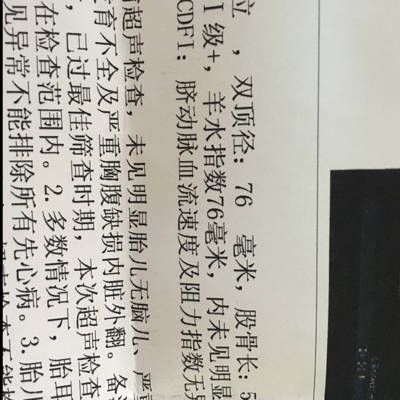 立 ，双顶径: 76 毫米, 股骨长: 5
I 级+, 羊水指数76毫米, 内未见明显
CDFI: 脐动脉血流速度及阻力指数无
超声检查, 未见明显胎儿无脑儿、严
育不全及严重胸腹缺损内脏外翻。备
, 已过最佳筛查时期, 本次超声检查
在检查范围内。2. 多数情况下, 胎耳
见异常不能排除所有先心病。3. 胎儿
超声检查不能